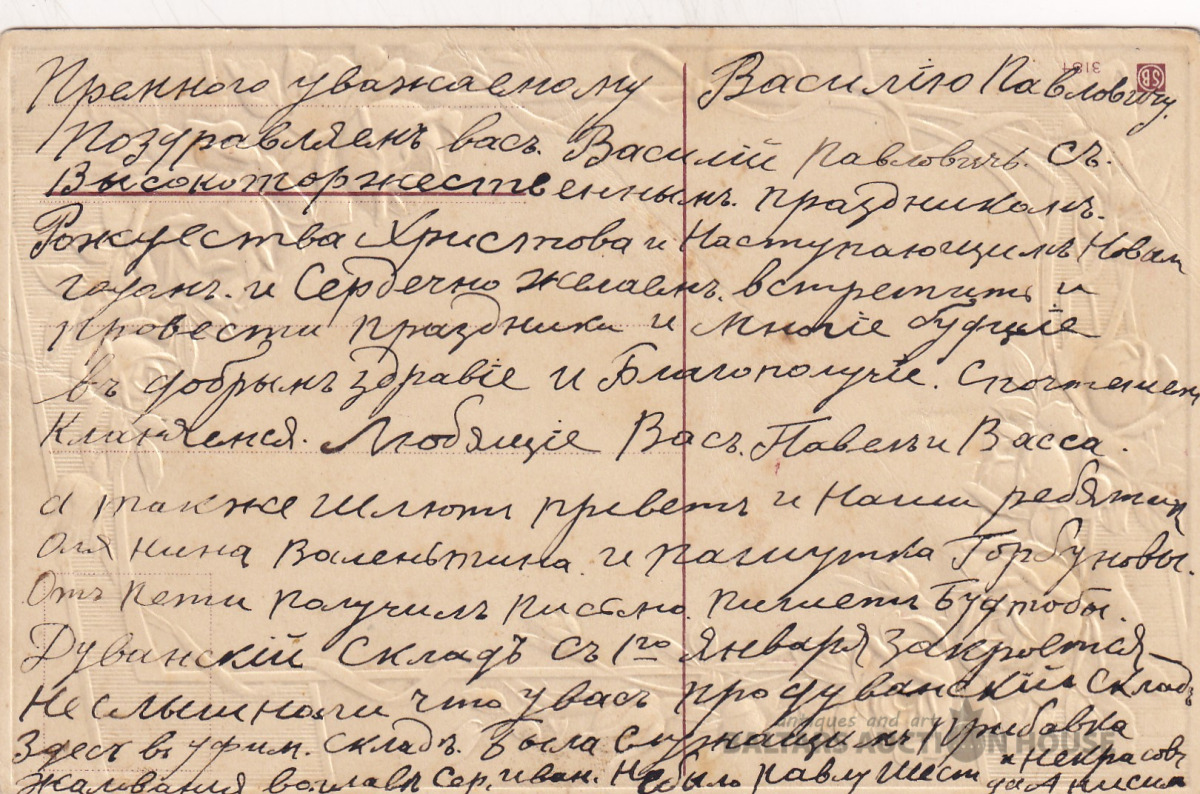 Премного уважаемому Василію Павловичу.
Поздравляемъ васъ. Василій Павловичь. съ.
Высокоторжественнымъ. праздникомъ.
Рождества Христова и Наступающимъ Новам
годамъ. и Сердечно желаемъ. встретить и
провести праздники и многіе будщіе
въ добрымъ здравіе и Благополучіе. с почтением
Кланяемся. Любящіе Васъ. Павелъ и Васса.
а также шлютъ приветъ и Наши ребятиш
Оля Нина Валентина. и пашутка Горбуновы.
Отъ Пети получилъ письмо. пишетъ Будтобы.
Дуванскій складъ съ 1го января закроется
Не слыш но ли что у васъ про дуванскій складъ
Здесь въ уфим. складъ. Была Служащимъ прибавка
Жалования Сер. иван. Не было павлу Шест и Некрасовъ
3181
SB
antiques and art
BALTIJAS AUCTION HOUSE